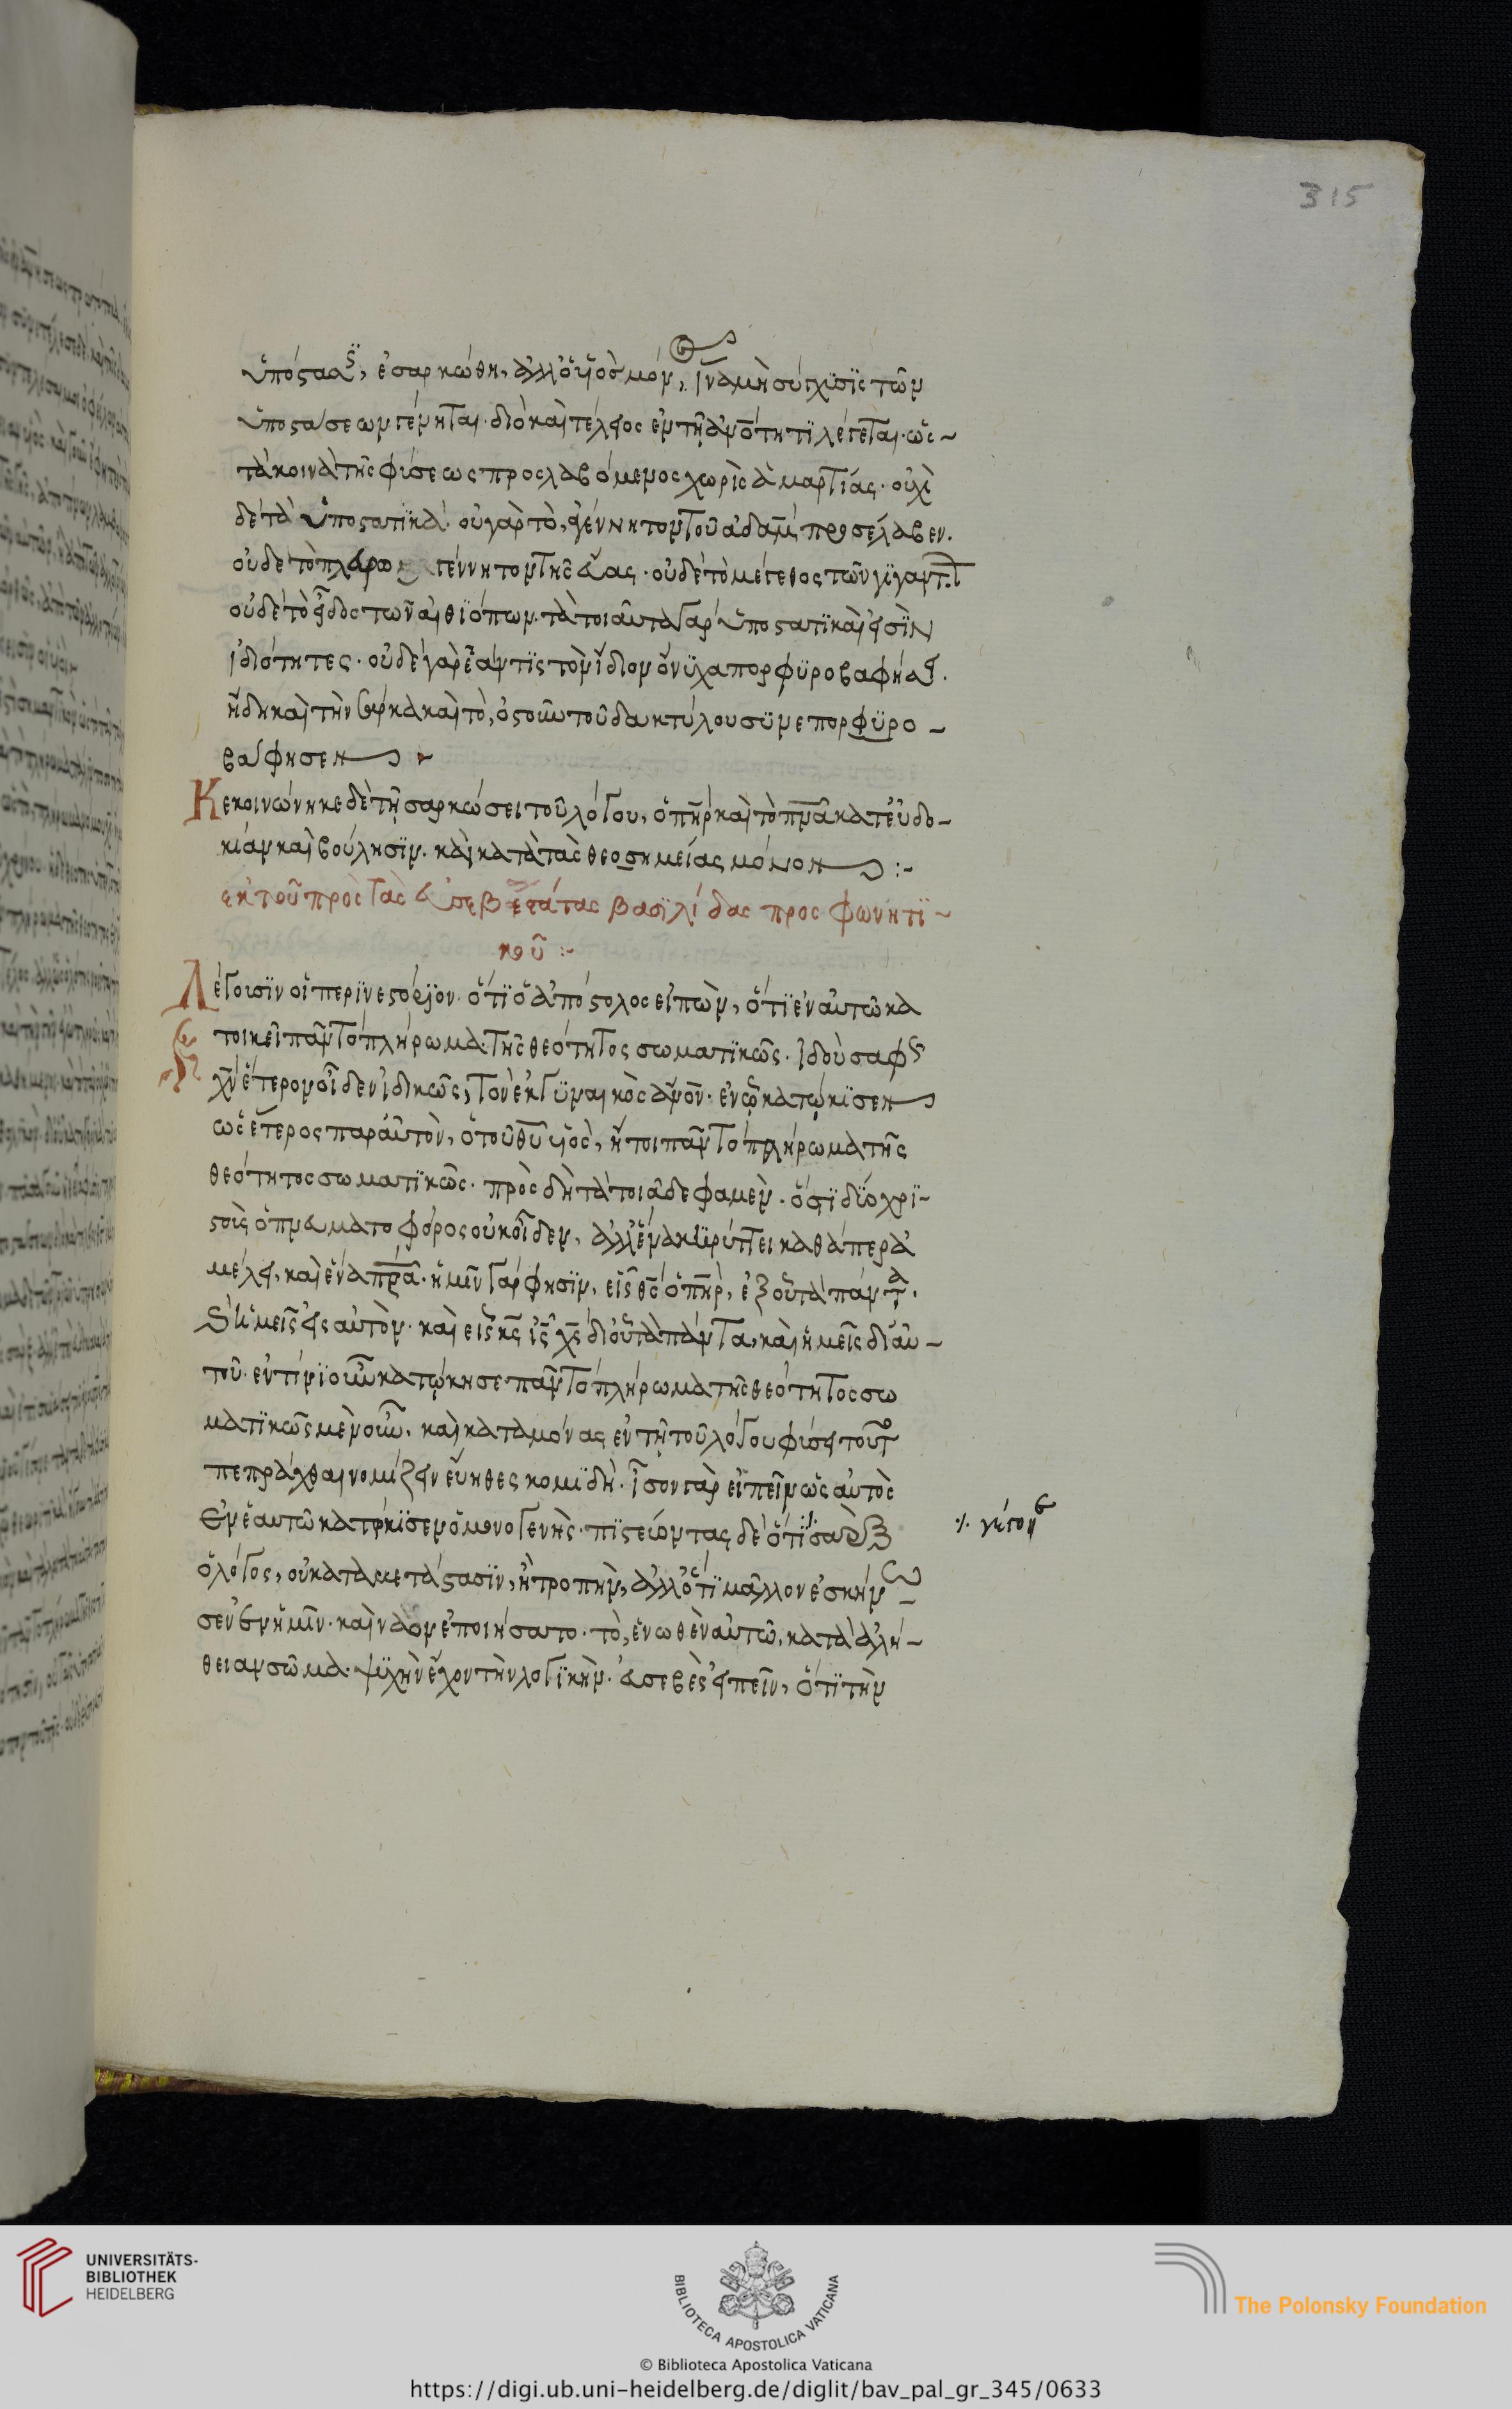 315
ὑποστάσεις, ἐσαρκώθη, ἀλλ' ὁ υἱὸς μόνος, ἵνα μὴ σύγχϋσϊς τῶν
ὑποστάσεων γένηται· διὸ καὶ τέλειος ἐν τῆ ἀνότητϊ λέγεται· ὡς
τὰ κοινὰ τῆς φύσεως προσλαβόμενος χωρὶς ἁμαρτίας· οὐχὶ
δὲ τὰ ὑποστατϊκά· οὐ γὰρ τὸ, ἀγέννητον τοῦ ἀδὰμ προσέλαβεν.
οὐδὲ τὸ γέννητον τῆς εὔας· οὐδὲ τὸ μέγεθος τῶν γϊγάντ
οὐδὲ τὸ εἶδος τῶν αἰθϊόπων· τὰ τοιαῦτα γὰρ ὑποστατϊκαὶ εἰσὶν
ἰδιότητες· οὐδὲ γὰρ ἐάν τϊς τὸν ἴδιον ὄνϋχα πορφϋροβαφήσει.
ἤδη καὶ τὴν σάρκα καὶ τὸ, ὀστοῦν τοῦ δακτύλου σϋνεπορφϋρο-
βάφησεν
Κεκοινώνηκε δὲ τῆ σαρκώσει τοῦ λόγου, ὁ πηρ καὶ τὸ πνα κατ' εὐδο-
κίαν καὶ βούλησϊν. καὶ κατὰ τὰς θεοσημείας μόνον :-
ἐκ τοῦ πρὸς τὰς εὐσεβεστάτας βασϊλίδας προσφωνητϊ-
κοῦ :-
Λέγουσϊν οἱ περὶ νεστόριον· ὅτϊ ὁ ἀπόστολος εἰπὼν, ὅτϊ ἐν αὐτῶ κα
τοικεῖ πᾶν τὸ πλήρωμα τῆς θεότητος σωματϊκῶς· ἰδοὺ σαφῶς
χν ἕτερον οἶδεν ἰδικῶς, τὸν ἐκ γϋναικὸς ἀνον· ἐν ὧ κατώκϊσεν
ὡς ἕτερος παρ' αὐτὸν, ὁ τοῦ θυ υἱὸς, ἤτοι πᾶν τὸ πλήρωμα τῆς
θεότητος σωματϊκῶς· πρὸς δὴ τὰ τοιάδε φαμέν· ὅτϊ δύο χρϊ-
στοὺς ὁ πνευματοφόρος οὐκ οἶδεν, ἀλλ' ἕνα κηρύττει καθάπερ ἀ
μέλει, καὶ ἕνα πρα· ἡμῖν γάρ φησϊν, εἷς θς ὁ πηρ, ἐξ οὗ τὰ πάντα.
καὶ ἡμεῖς εἰς αὐτόν· καὶ εἷς κς ις χς δι' οὗ τὰ πάντα, καὶ ἡμεῖς δι' αὐ-
τοῦ· ἐν τίνϊ οὖν κατώκησε πᾶν τὸ πλήρωμα τῆς θεότητος σω
ματϊκῶς μὲν οὖν. καὶ καταμόνας ἐν τῆ τοῦ λόγου φύσει τοῦτο
πεπράχθαι νομίζειν εὔηθες κομϊδῆ· ἴσον γὰρ εἰπεῖν ὡς αὐτὸς
ἐν ἑαυτῶ κατώκϊσεν ὁ μονογενής· πϊστεύοντας δὲ ὅτϊ σὰρξ
ὁ λόγος, οὐ κατὰ μετάστασϊν, ἢ τροπὴν, ἀλλ' ὅτϊ μᾶλλον ἐσκήνω
σεν ἐν ἡμῖν· καὶ ναὸν ἐποιήσατο· τὸ, ἑνωθὲν αὐτῶ, κατὰ ἀλή-
θειαν σῶμα· ψυχὴν ἔχον τὴν λογϊκήν· ἀσεβὲς εἰπεῖν, ὅτϊ τὴν
·/. γέγονεν
UNIVERSITÄTS-
BIBLIOTHEK
HEIDELBERG
BIBLIOTECA APOSTOLICA VATICANA
The Polonsky Foundation
© Biblioteca Apostolica Vaticana
https://digi.ub.uni-heidelberg.de/diglit/bav_pal_gr_345/0633